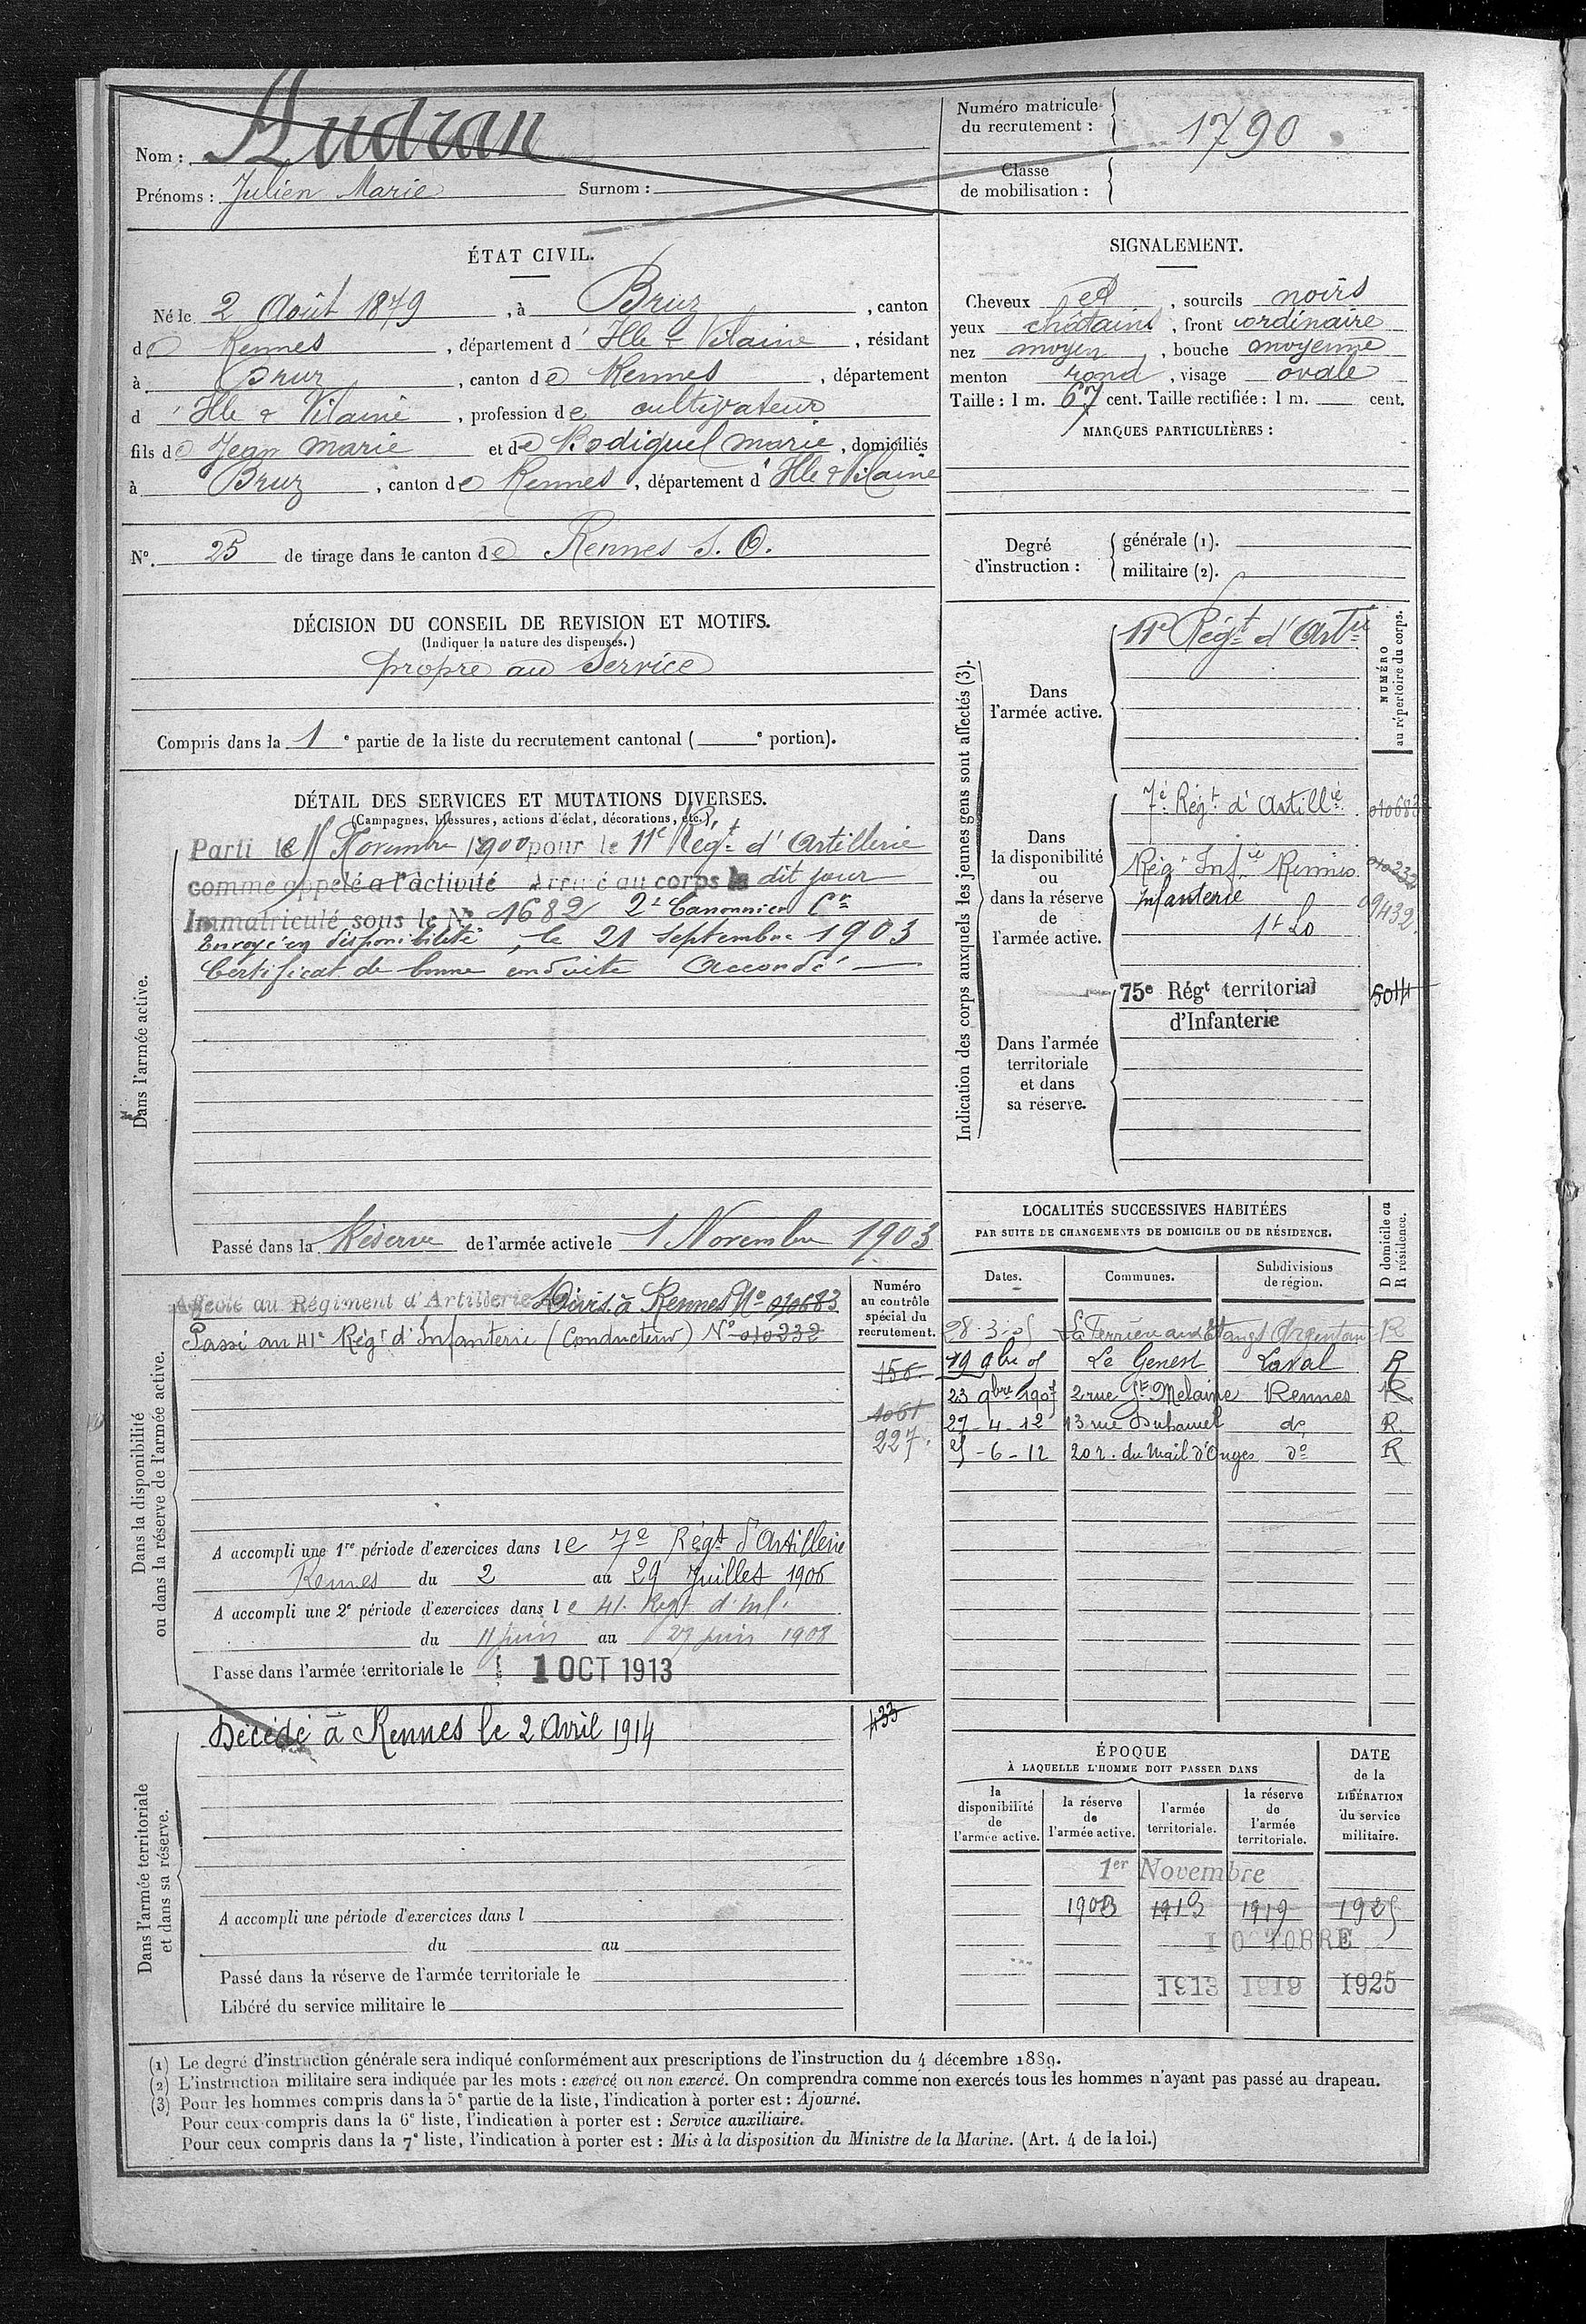 Nom : Audran
Prénoms : Julien Marie Surnom :
Numéro matricule du recrutement : 1790
Classe de mobilisation :
ÉTAT CIVIL.
Né le 2 Août 1879, à Bruz, canton
de Rennes, département d'Ille & Vilaine, résidant
à Bruz, canton de Rennes, département
d'Ille & Vilaine, profession de cultivateur
fils de Jean Marie et de Bodiguel Marie, domiciliés
à Bruz, canton de Rennes, département d'Ille & Vilaine
N°. 25 de tirage dans le canton de Rennes S. O.
DÉCISION DU CONSEIL DE REVISION ET MOTIFS.
(Indiquer la nature des dispenses.)
propre au Service
Compris dans la 1e partie de la liste du recrutement cantonal ( e portion).
SIGNALEMENT.
Cheveux et, sourcils noirs
yeux châtains, front ordinaire
nez moyen, bouche moyenne
menton rond, visage ovale
Taille : 1 m. 67 cent. Taille rectifiée : 1 m. cent.
MARQUES PARTICULIÈRES :
Degré d'instruction :
générale (1).
militaire (2).
DÉTAIL DES SERVICES ET MUTATIONS DIVERSES.
(Campagnes, blessures, actions d'éclat, décorations, etc.)
Dans l'armée active.
Parti le Novembre 1900 pour le 11e Régt d'Artillerie
comme appelé à l'activité Arrivé au corps le dit jour
Immatriculé sous le N° 1682 2e Canonnier Cr
Envoyé en disponibilité, le 21 Septembre 1903
Certificat de bonne conduite Accordé
Passé dans la Réserve de l'armée active le 1 Novembre 1903
Indication des corps auxquels les jeunes gens sont affectés (3).
NUMÉRO au répertoire du corps.
Dans l'armée active.
11e Régt d'Artie
Dans la disponibilité ou dans la réserve de l'armée active.
7e Régt d'Artillie 010683
Régt Infie Rennes 010232
Infanterie 09432
1t Lo
Dans l'armée territoriale et dans sa réserve.
75e Régt territorial
d'Infanterie
Dans la disponibilité ou dans la réserve de l'armée active.
Numéro au contrôle spécial du recrutement.
Affecté au Régiment d'Artillerie Divis. à Rennes N° 010683
Passé au 41e Régt d'Infanterie (Conducteur) N° 010232
156
1061
227.
A accompli une 1re période d'exercices dans le 7e Régt d'Artillerie
Rennes du 2 au 29 Juillet 1906
A accompli une 2e période d'exercices dans le 41. Regt d'Inf.
du 11 juin au 27 juin 1908
Passé dans l'armée territoriale le 1 OCT 1913
LOCALITÉS SUCCESSIVES HABITÉES
PAR SUITE DE CHANGEMENTS DE DOMICILE OU DE RÉSIDENCE.
Dates. Communes. Subdivisions de région. D domicile ou R résidence.
28-3-05 La Ferrière aux Etangs Argentan R
19 9bre 05 Le Genest Laval R
23 9bre 1907 2 rue St Melaine Rennes R
27-4-12 13 rue Duhamel do R.
25-6-12 20 r. du Mail d'Onges do R
Dans l'armée territoriale et dans sa réserve.
Décédé à Rennes le 2 Avril 1914
433
A accompli une période d'exercices dans l
du au
Passé dans la réserve de l'armée territoriale le
Libéré du service militaire le
ÉPOQUE
À LAQUELLE L'HOMME DOIT PASSER DANS
la disponibilité de l'armée active. la réserve de l'armée active. l'armée territoriale. la réserve de l'armée territoriale. DATE de la LIBÉRATION du service militaire.
1er Novembre
1903 1913 1919 1925
1 OCTOBRE
1913 1919 1925
(1) Le degré d'instruction générale sera indiqué conformément aux prescriptions de l'instruction du 4 décembre 1889.
(2) L'instruction militaire sera indiquée par les mots : exercé ou non exercé. On comprendra comme non exercés tous les hommes n'ayant pas passé au drapeau.
(3) Pour les hommes compris dans la 5e partie de la liste, l'indication à porter est : Ajourné.
Pour ceux compris dans la 6e liste, l'indication à porter est : Service auxiliaire.
Pour ceux compris dans la 7e liste, l'indication à porter est : Mis à la disposition du Ministre de la Marine. (Art. 4 de la loi.)